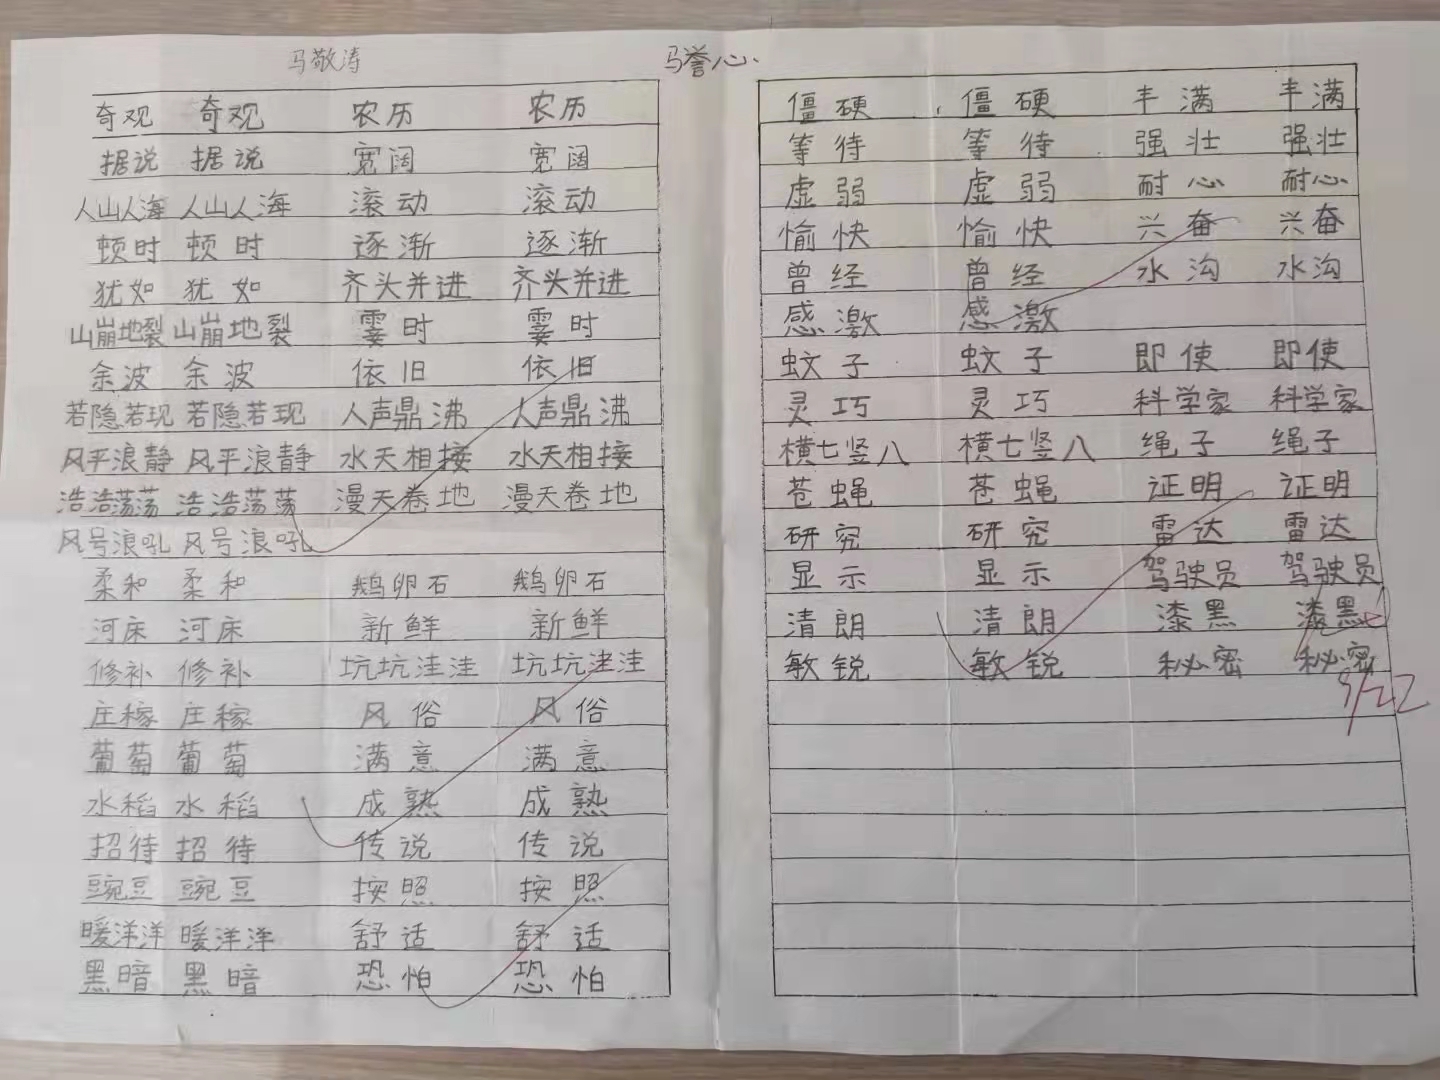 马敬涛
马誉心
奇观 奇观 农历 农历
据说 据说 宽阔 宽阔
人山人海 人山人海 滚动 滚动
顿时 顿时 逐渐 逐渐
犹如 犹如 齐头并进 齐头并进
山崩地裂 山崩地裂 霎时 霎时
余波 余波 依旧 依旧
若隐若现 若隐若现 人声鼎沸 人声鼎沸
风平浪静 风平浪静 水天相接 水天相接
浩浩荡荡 浩浩荡荡 漫天卷地 漫天卷地
风号浪吼 风号浪吼
柔和 柔和 鹅卵石 鹅卵石
河床 河床 新鲜 新鲜
修补 修补 坑坑洼洼 坑坑洼洼
庄稼 庄稼 风俗 风俗
葡萄 葡萄 满意 满意
水稻 水稻 成熟 成熟
招待 招待 传说 传说
豌豆 豌豆 按照 按照
暖洋洋 暖洋洋 舒适 舒适
黑暗 黑暗 恐怕 恐怕
僵硬 僵硬 丰满 丰满
等待 等待 强壮 强壮
虚弱 虚弱 耐心 耐心
愉快 愉快 兴奋 兴奋
曾经 曾经 水沟 水沟
感激 感激
蚊子 蚊子 即使 即使
灵巧 灵巧 科学家 科学家
横七竖八 横七竖八 绳子 绳子
苍蝇 苍蝇 证明 证明
研究 研究 雷达 雷达
显示 显示 驾驶员 驾驶员
清朗 清朗 漆黑 漆黑
敏锐 敏锐 秘密 秘密
9/22